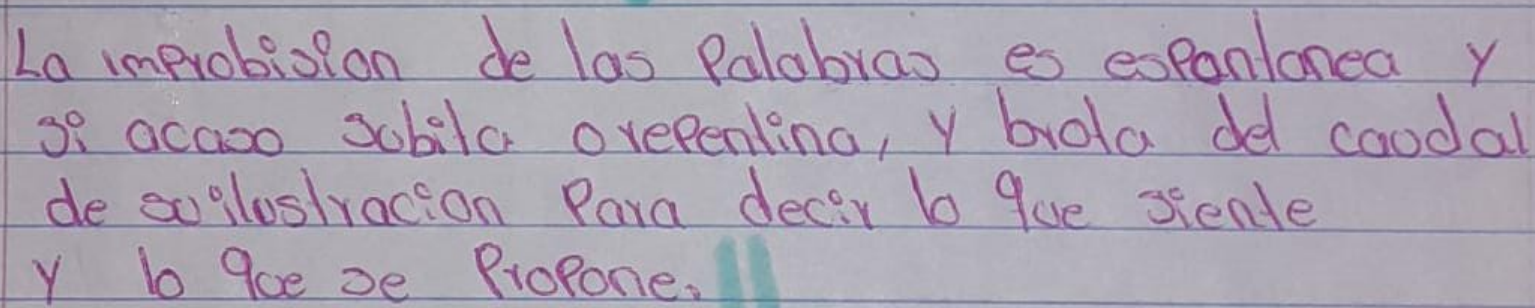 La improbision de las Palabras es espantanea y
si acaso subita o repentina, y brota del caudal
de su ilustracion Para decir lo que siente
y lo que se Propone.